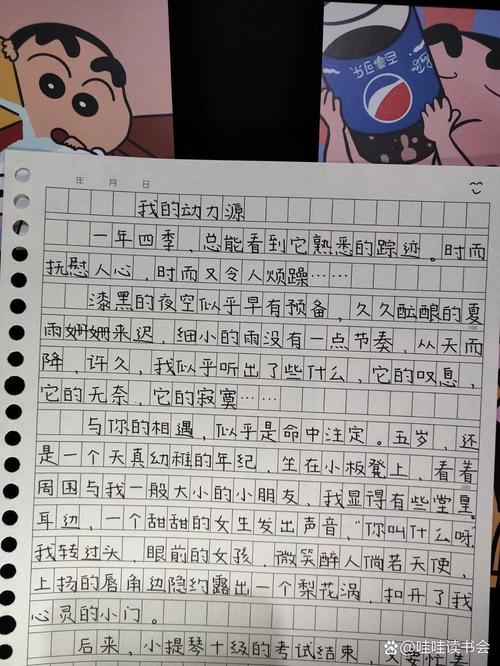 百事可乐
年 月 日
我的动力源
一年四季，总能看到它熟悉的踪迹。时而
抚慰人心，时而又令人烦躁……
漆黑的夜空似乎早有预备，久久酝酿的夏
雨姗姗来迟，细小的雨没有一点节奏，从天而
100
降，许久，我似乎听出了些什么，它的叹息，
它的无奈，它的寂寞……
与你的相遇，似乎是命中注定。五岁，还
是一个天真幼稚的年纪，坐在小板凳上，看着
200
周围与我一般大小的小朋友，我显得有些堂皇。
耳边，一个甜甜的女生发出声音，“你叫什么呀”
我转过头，眼前的女孩，微笑醉人倘若天使，
上扬的唇角边隐约露出一个梨花涡，扣开了我
心灵的小门。
后来，小提琴十级的考试结束，
哇哇读书会